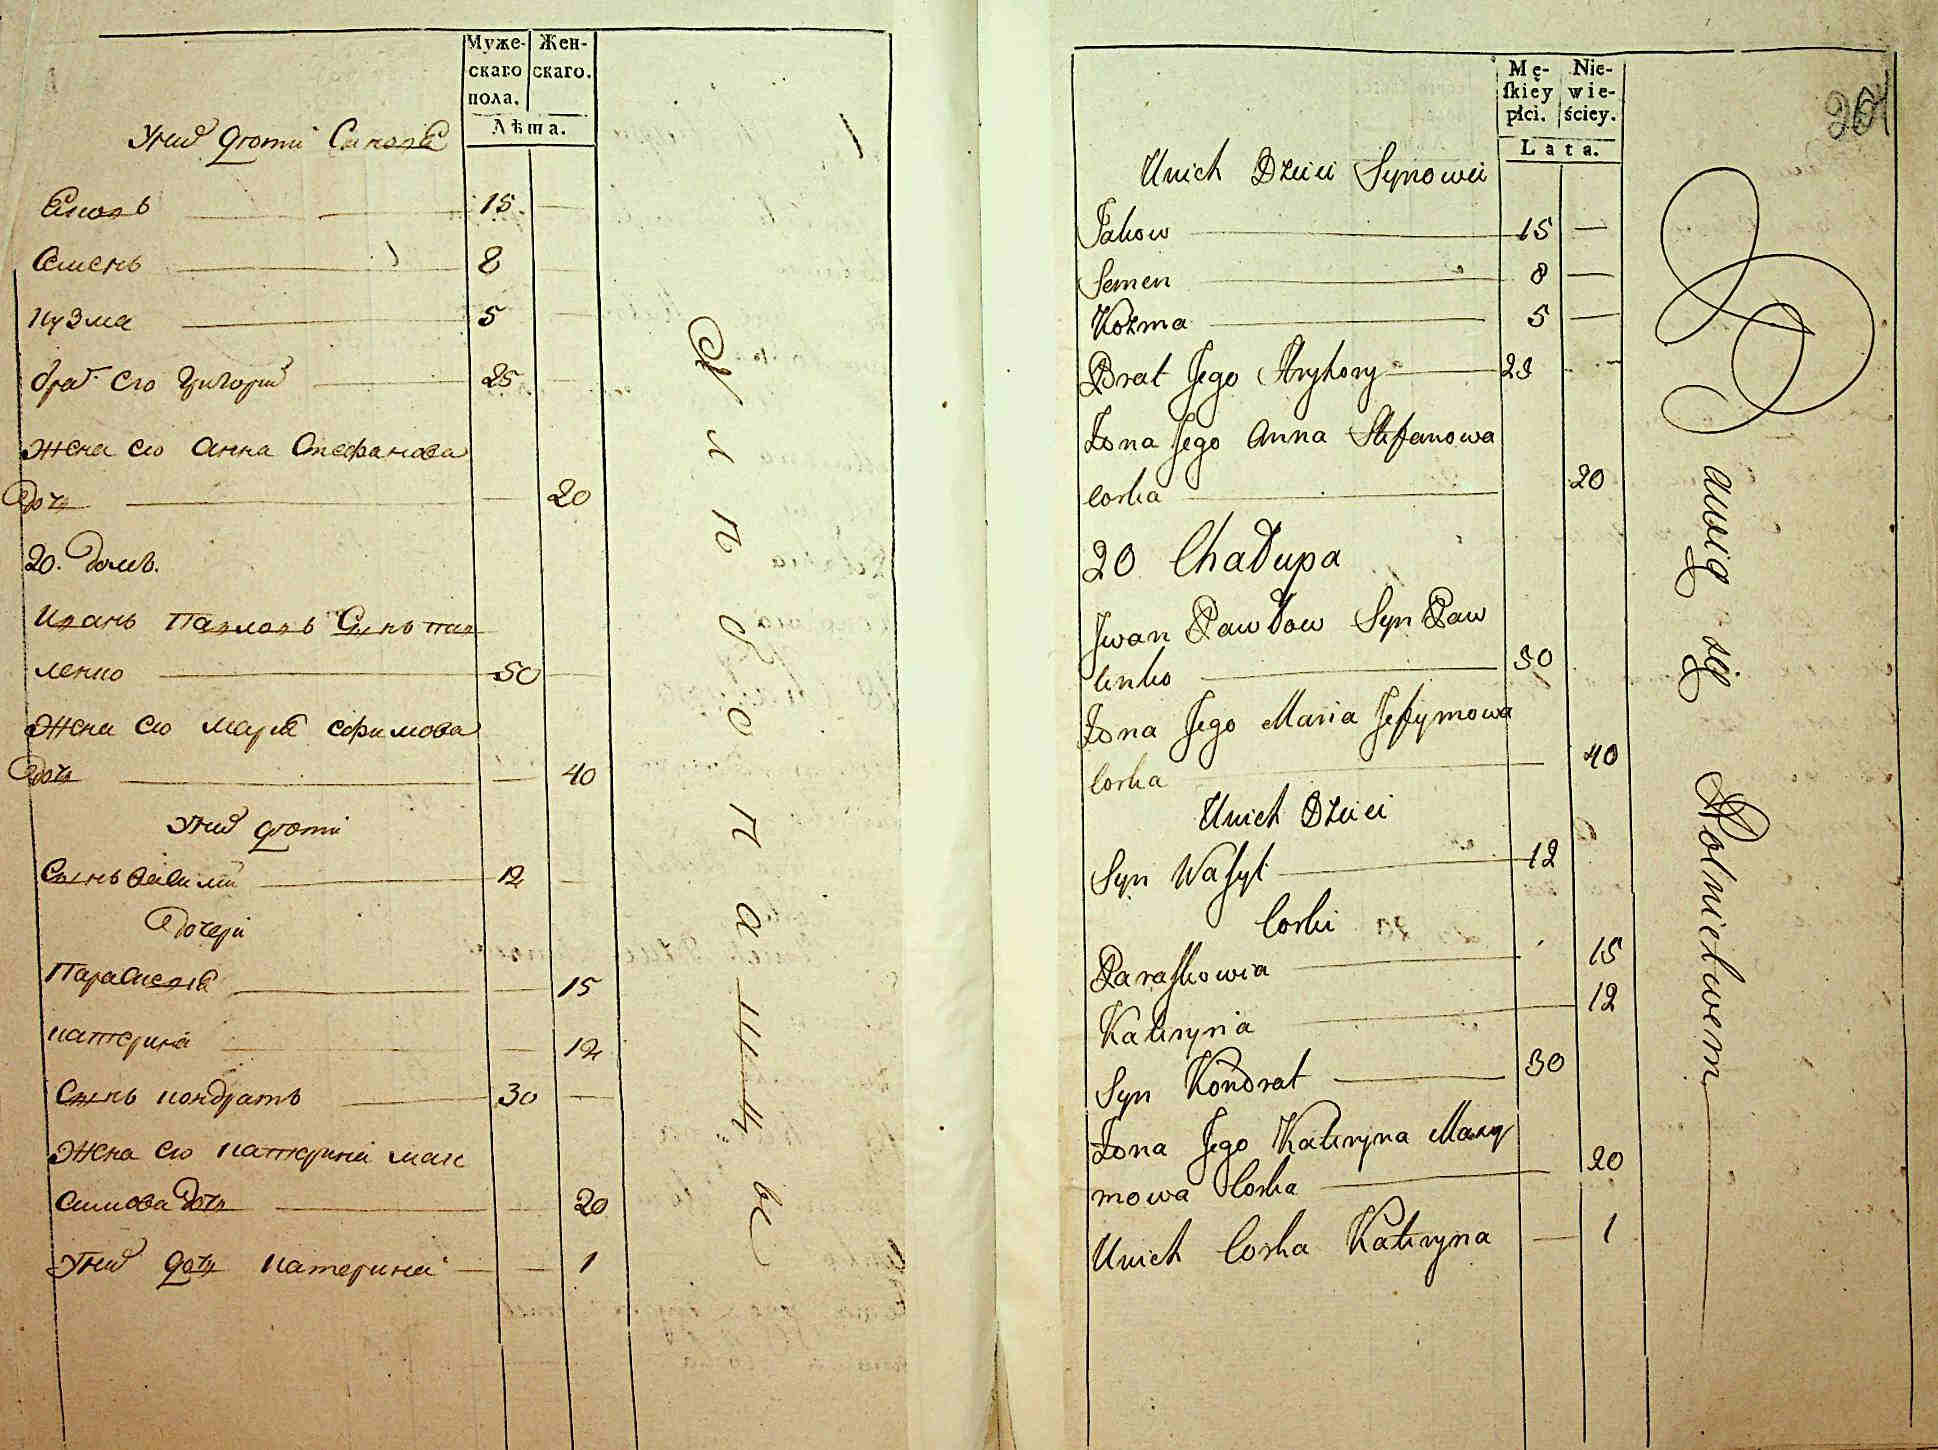 Муже-
скаго
пола.
Жен-
скаго.
Лѣта.
Унихъ дѣти Синовя
Яковъ 15
Семенъ 8
кузма 5
братъ его григорий 25
Жена его анна Стефанова
дочь 20
20. домъ.
Иванъ Павловъ Сынъ пав
ленко 50
Жена его Мария ефимова
дочь 40
Унихъ дѣти
Сынъ василий 12
дочери
Парасковия 15
катерина 12
Сынъ кондратъ 30
Жена его катерина мак
симова дочь 20
Унихъ дочь катерина 1
хлибопашцы
Mę-
skiey
płci.
Nie-
wie-
ściey.
Lata.
204
Unich Dzieci Synowei
Jakow 15
Semen 8
Kozma 5
Brat Jego Hryhory 25
Żona Jego Anna Stefanowa
Corka 20
20 Chałupa
Jwan Pawłow Syn Paw
lenko 50
Żona Jego Maria Jefymowa
Corka 40
Unich Dzieci
Syn Wasyl 12
Corki
Paraskowia 15
Kateryna 12
Syn Kondrat 30
Żona Jego Kateryna Maxy
mowa Corka 20
Unich Corka Kateryna 1
Bawią się Rolnictwem